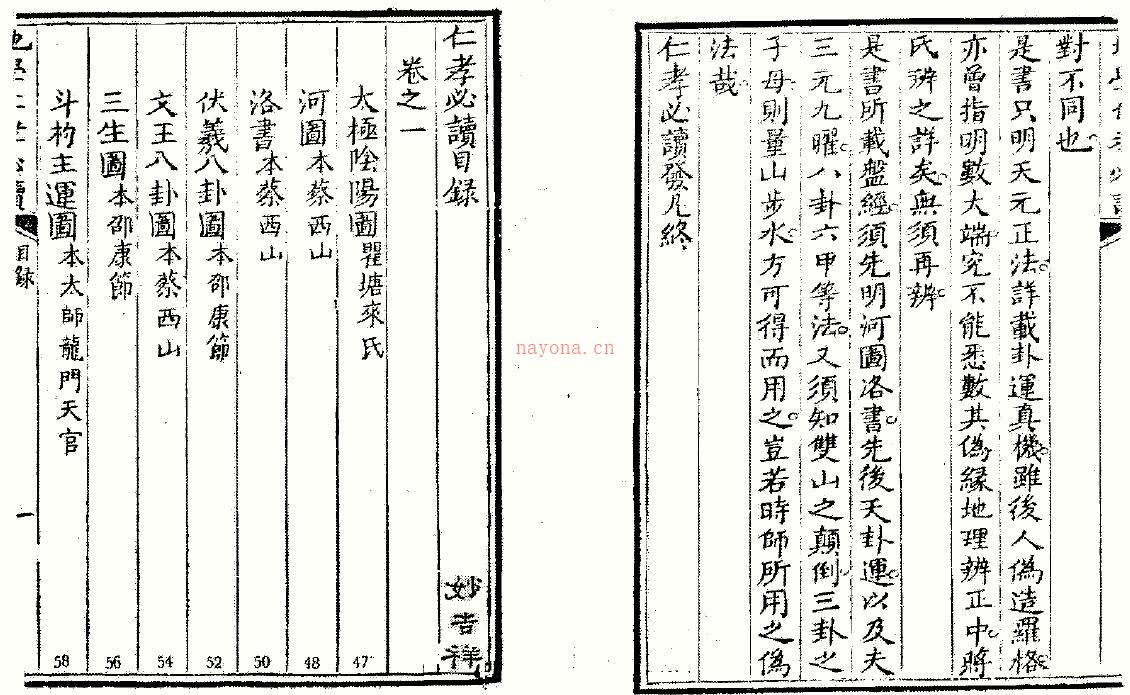 對不同也
是書只明天元正法詳載卦運真機雖後人偽造羅格
亦曾指明數大端究不能悉數其偽緣地理辨正中蔣
氏辨之詳矣無須再辨
是書所載盤經須先明河圖洛書先後天卦運以及夫
三元九曜八卦六甲等法又須知雙山之顛倒三卦之
子母則量山步水方可得而用之豈若時師所用之偽
法哉
仁孝必讀發凡終
nayona.cn
仁孝必讀目錄
妙吉祥
卷之一
太極陰陽圖瞿塘來氏 47
河圖本蔡西山 48
洛書本蔡西山 50
伏羲八卦圖本邵康節 52
文王八卦圖本蔡西山 54
三生圖本邵康節 56
斗杓主運圖本太師龍門天官 58
目錄
一